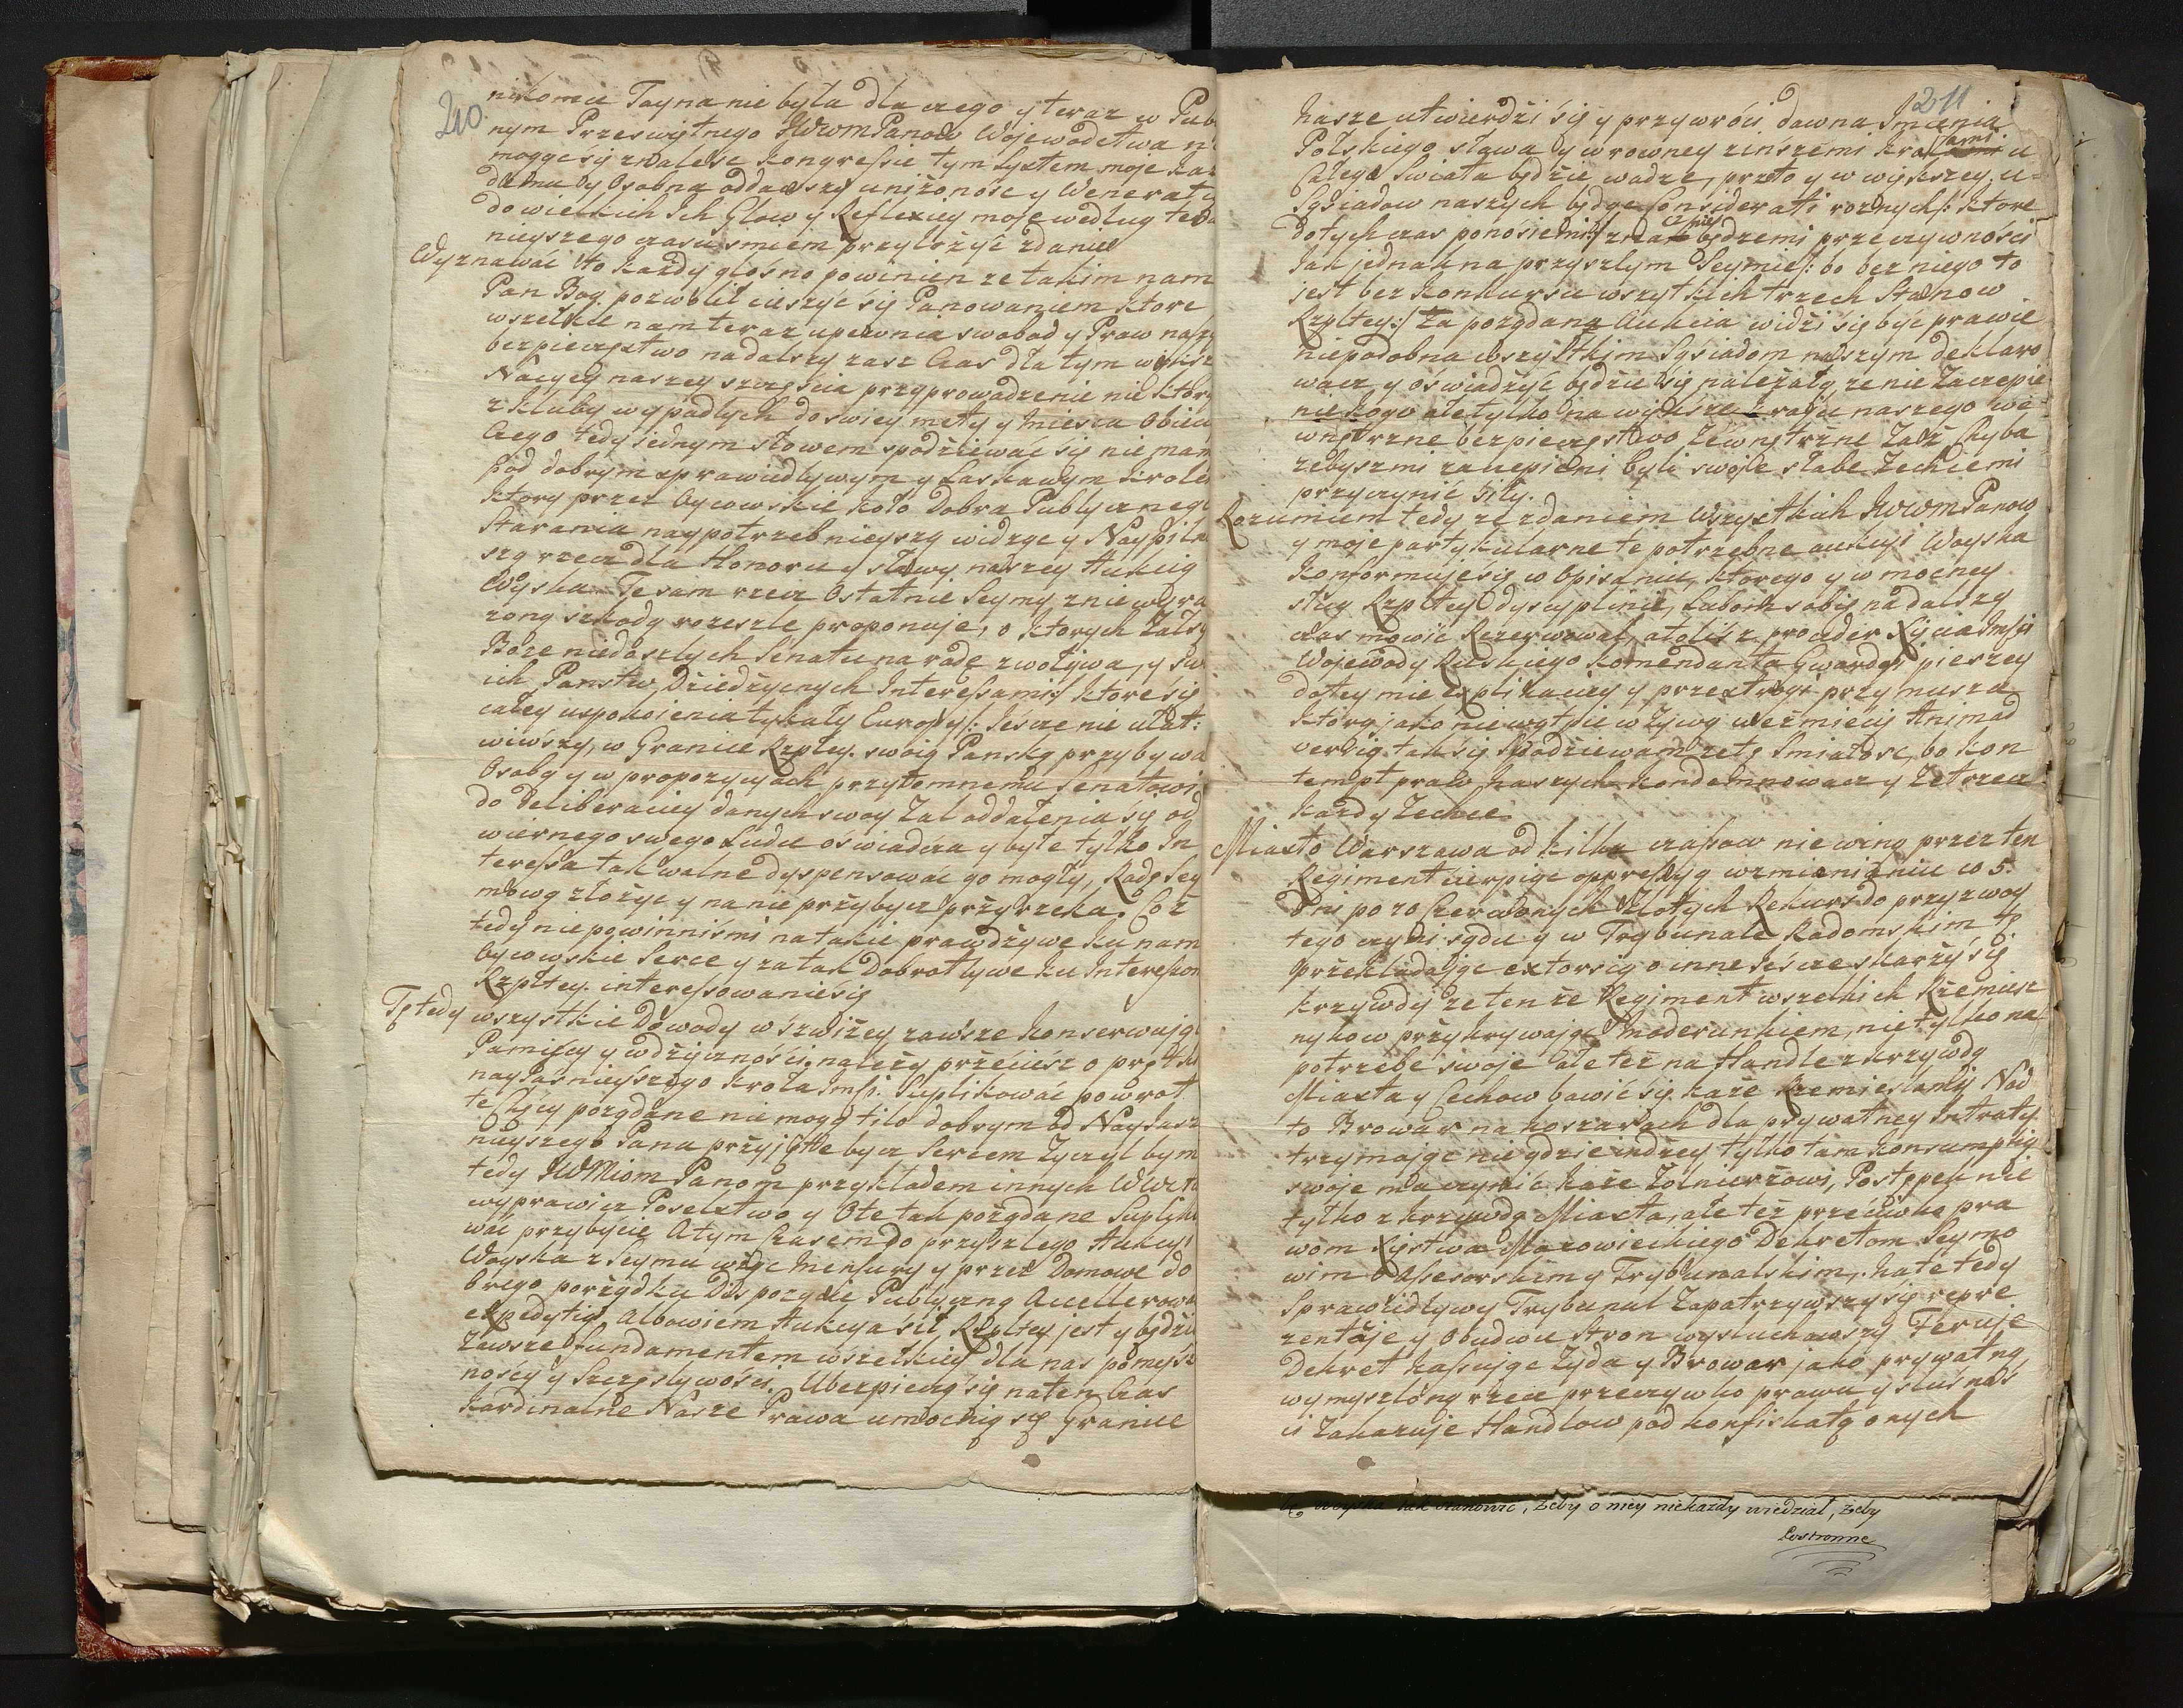 210
nikomu Tayna nie była dla czego y teraz w Pub
nym Przeswiętnego JWWmPanow Wojewodztwa
mogąc śię znalesc kongressie tym łystem moje
demu y Osobną oddawszy uniżonosc y Wenerat
do wielkich Ich Głow y Reflexiey moje według
nieyszego czasu smiem przyłożyć zdanie
Wyznawać to każdy głosno powinien ze takim nam
Pan Bog pozwolił cieszyć się Panowaniem ktore
wszelkie nam teraz upewnia swobod y Praw nasz
bezpieczęstwo nadalszy zasz Czas dla tym
Nacyey naszey szczęscia przyprowadzenie niektory
z kluby wypadłych do swiey mety y Miesca Obieca
Czego tedy jednym słowem spodziewać się nie mam
pod dobrym sprawiedlywym y Łaskawym Krole
ktory przez Oycowskie koło Dobra Publycznego
Starania naypotrzebnieyszą widząc y Naypiln
szą rzecz dla Honoru y sławy naszey Aukcią
Woyska. Te sam rzecz Ostatnie Seymy z niewyra
zoną szkodą rozeszłe proponuje, o ktorych żal się
Boże niedoszłych Senatu na radę zwoływa, y sw
ich Panstw Dziedzycznych Interessami ktore się
całey uspokoienia tykały Europy /: jeszcze nie ułat:
wiwszy, w Granice Rzpltey. swoią Panską przybywa
Osobą y w propozycyach przytomnemu Senatowi
do Deliberaciey danych swoy żal oddalenia się od
wiernego swego Ludu oświadcza y byłe tylko In
teressa tak walne dyspensować go mogły, Radę Sey
mową złożyc y na nie przybycz przyrzeka. Coż
tedy nie powinniśmi na takie prawdżywe ku nam
Oycowskie Serce y za tak Dobrotlywe ku Interesson
Rzpltey. interessowanie się
Tę tedy wszystkie Dowody w świżey zawsze konserwując
Pamięcy y wdżyczności, należy przeciesz o prętki
nayiaśnieyszego krola Jmsi. Suplikować powrot
te Chęcy poządane nie mogą tilo dobrym od Nayiasz
nieyszego Pana przyjęte bycz Sercem Zyczył bym
tedy JWMiom Panom przykładem innych WWctw
wyprawicz Poselstwo y Ote tak pożądane Suplyko
wac przybycie. Atym czasem do przyszłego Aukcyi
Woyska z Seymu więc mensury y przez Domowe do
brego porżydku Dispozycie Publyczną Accellerowa
expedytią Albowiem Aukcya sił, Rzpltey jest y będzie
zawsze fundamentem wszelkiey dla nas pomysl
nośćy y Szczęslywości. Ubezpieczą się na ten Czas
Kardinalne Nasze Prawa umocnią się Granice
211
nasze utwierdzi się y przywróci dawna Imienia
Polskiego sława y w rowney zinszemi kro
całego Swiata będzie wadze, przeto y w większey u-
Sąsiadow naszych będąc Consideratii roznych /: ktore
Dotych czas ponosiemi :/ znac nie będzemi przeczywnosci
Jak jednak na przyszłym Seymie /: bo bez niego to
jest bez konkursu wszytkich trzech Stanow
Rzpltey :/ Ta pożądana Aukcia widżi się byc prawie
niepodobna wszystkim Sąsiadom naszym deklaro
wacz, y oświadżyć będzie się należały, ze nie Zaczepie
nie kogo ale tylko na większe kraju naszego we-
wnętrzne bezpieczęstwo Zewnętrzne Zasz Chyba
zebyszmi zaczepieni byli swoje słabe Zechcemi
przyczynić Siły.
Rozumiem tedy ze zdaniem Wszystkich JWWmPanow
y moje partykularne te potrzebne aukcyi Woyska
konformuje się w Opisaniu, ktorego y w mocney
sług Rzpltey Dyscyplinie, Lubom sobie na dalszy
czas mowić Rezerwował, atoli z proceder Xięcia Jmsi
Wojewody Ruskiego komendanta Gwardyi pieszey
dotey mie explikaciey y przestrogi przymusza
ktorą jako niewątpie w Żywą wezmiecie Animad
versię. tak się spodziewam zetę Smiałosc, bo kon
tempt praw naszych kondemnowacz y Zetrzecz
każdy Zechce.
Miasto Warszawa od kilku czasow niewinę przez ten
Regiment cierpiąc oppressyą wzmienieniu co 5.
Dni po 20 Czerwonych Złotych Rekurs do przyzwoy
tego czyni sądu y w Trybunale Radomskim
przekładając extorsię o inne Jescze skarży się
krzywdy ze ten że Regiment wszelkich Rżemiesz
nykow przykrywając Moderunkiem, nie tylko na
potrzebe swoje ale też na Handle z krzywdą
Miasta y Cechow bawić się każe Rzemieslanky Nad
to Browar na koszarach dla prywatney Intraty
trzymając nie gdzie indzey tylko tam konsumptię
swoje ma czynić każe Zolnierżowi, Postępek nie
tylko z krzywdą Miasta, ale też przeciwko pra
wom Xięstwa Mazowieckiego Dekretom Seymo
wim Assesorskim y Trybunalskim, na te tedy
Sprawidlywy Trybunal zapatrzywszy się repre
zentaje y Obudwu Stron wysłuchawszy Feruje
Dekret kassując Zyda y Browar jako prywatną
wymyszloną rzecz przeczywko prawu y słusnos
ci Zakazuje Handlow pod konfiskatą onych
Woyska tak stanowić, żeby o niey niekażdy wiedział, żeby
Postronne